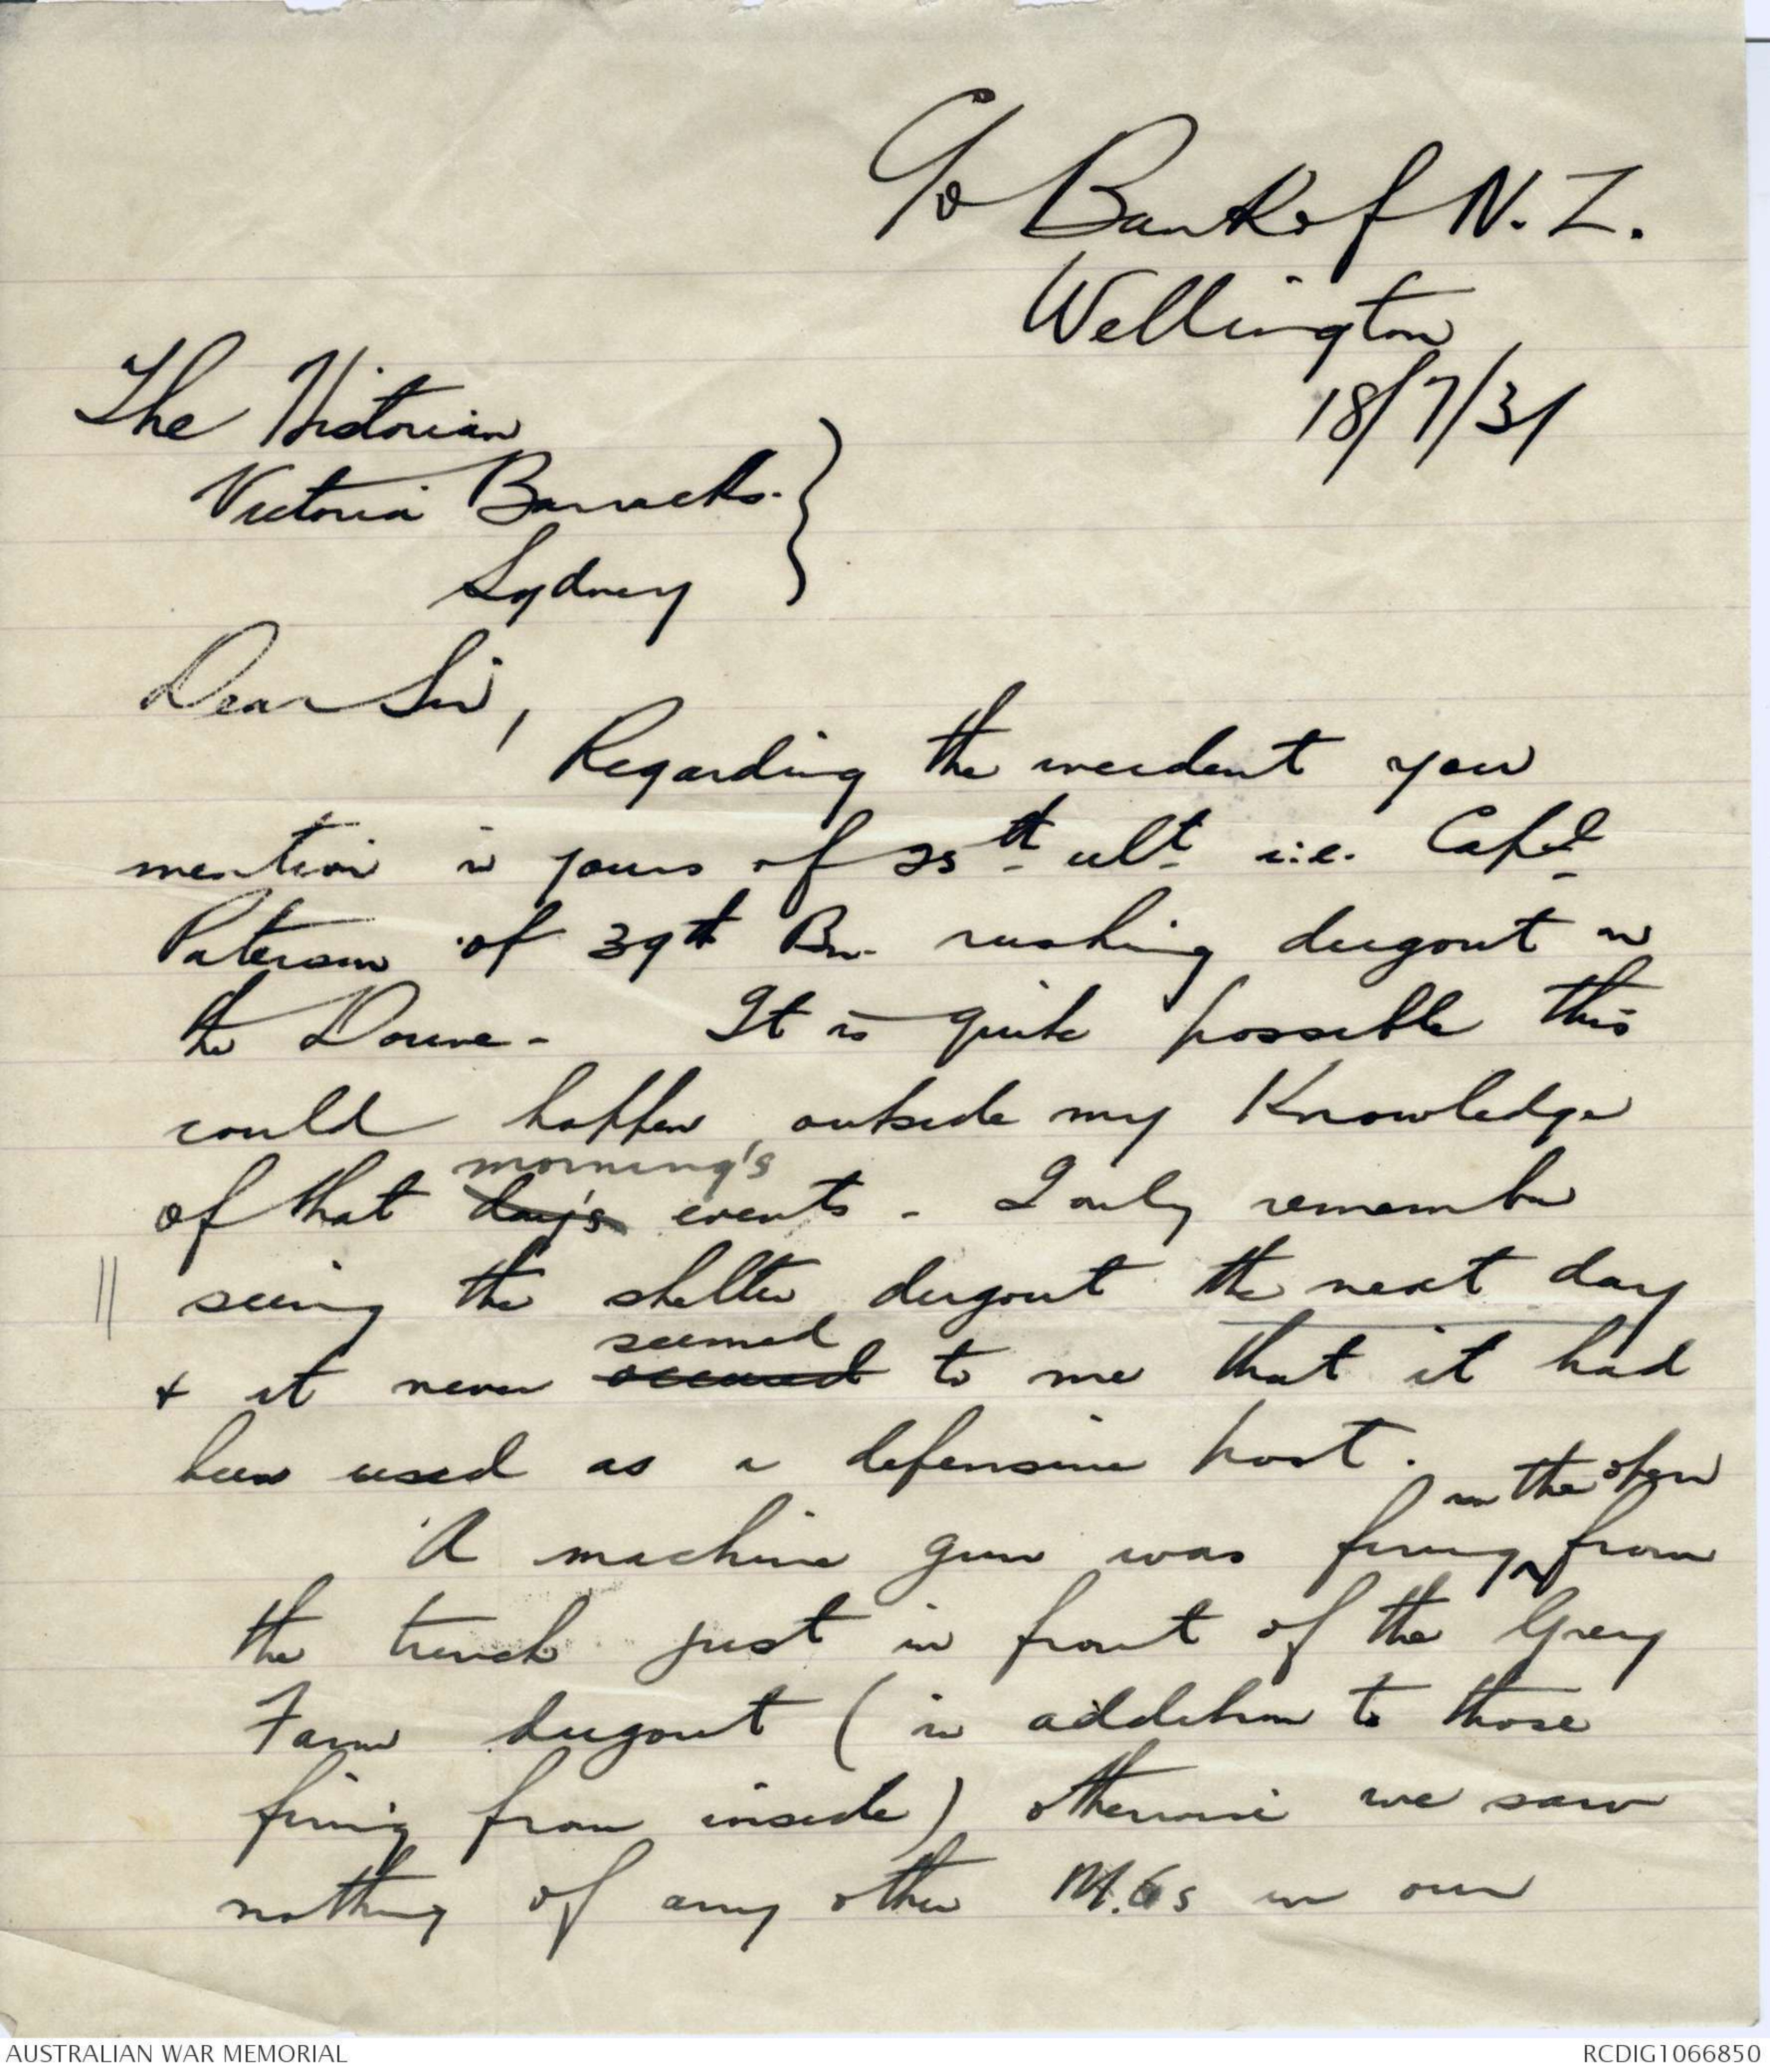 C/o Bank of N.Z.
Wellington
18/7/31
The Historian
Victoria Barracks.
Sydney
Dear Sir,
Regarding the incident you
mention in yours of 25th ult i.e. Capt
Paterson of 39th Bn. rushing dugout in
the Douve - It is quite possible this
could happen, outside my Knowledge
morning's
of that day's events - I only remember
seeing the shelter dugout the next day
seemed
+ it never occured to me that it had
been used as a defensive post.
in the open
A machine gun was firing from
the trench just in front of the Grey
Farm dugout (in addition to those
firing from inside) otherwise we saw
nothing of any other M.Gs in our
AUSTRALIAN WAR MEMORIAL
RCDIG1066850